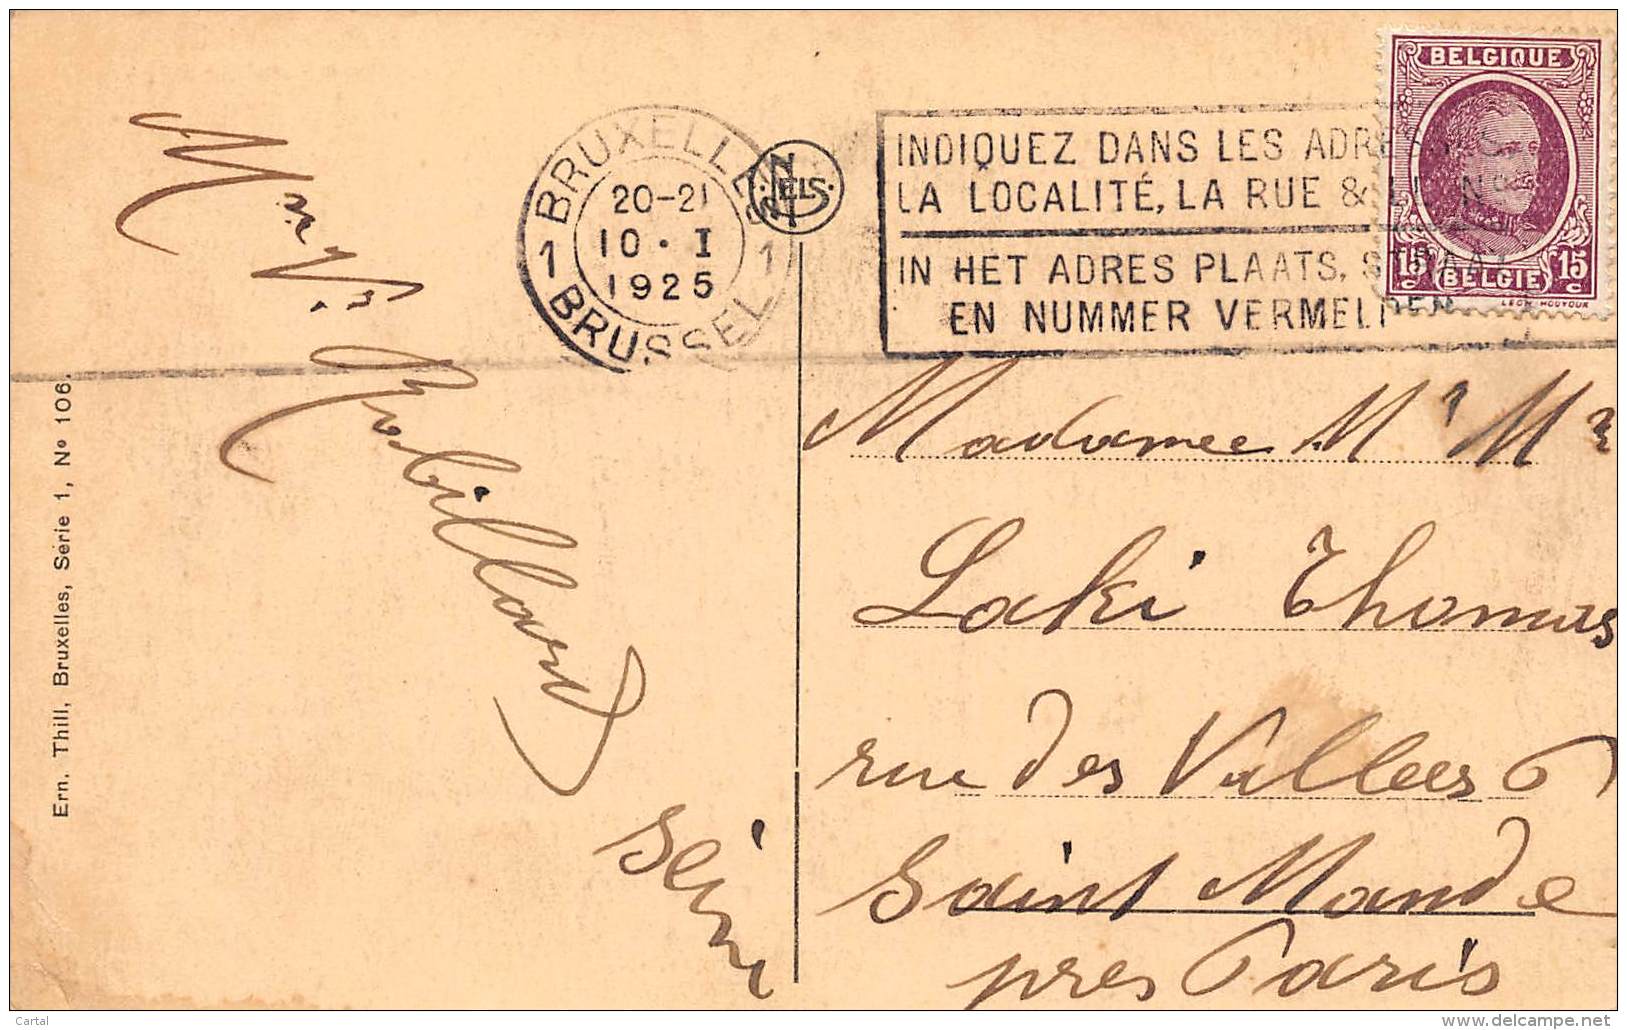 BELGIQUE
15 c 15 c
BELGIE
LEON HOUYOUX
BRUXELLES
20-21
10·I
1925
1 1
BRUSSEL
NELS
INDIQUEZ DANS LES ADRES
LA LOCALITÉ, LA RUE & LE Nº
IN HET ADRES PLAATS, STRAAT
EN NUMMER VERMELDEN
Robillard
Ern. Thill, Bruxelles, Série 1, Nº 106.
Madame M
Laki Thomas
rue des Vallees 6
Saint Mande
près Paris
Seine
Cartal
www.delcampe.net